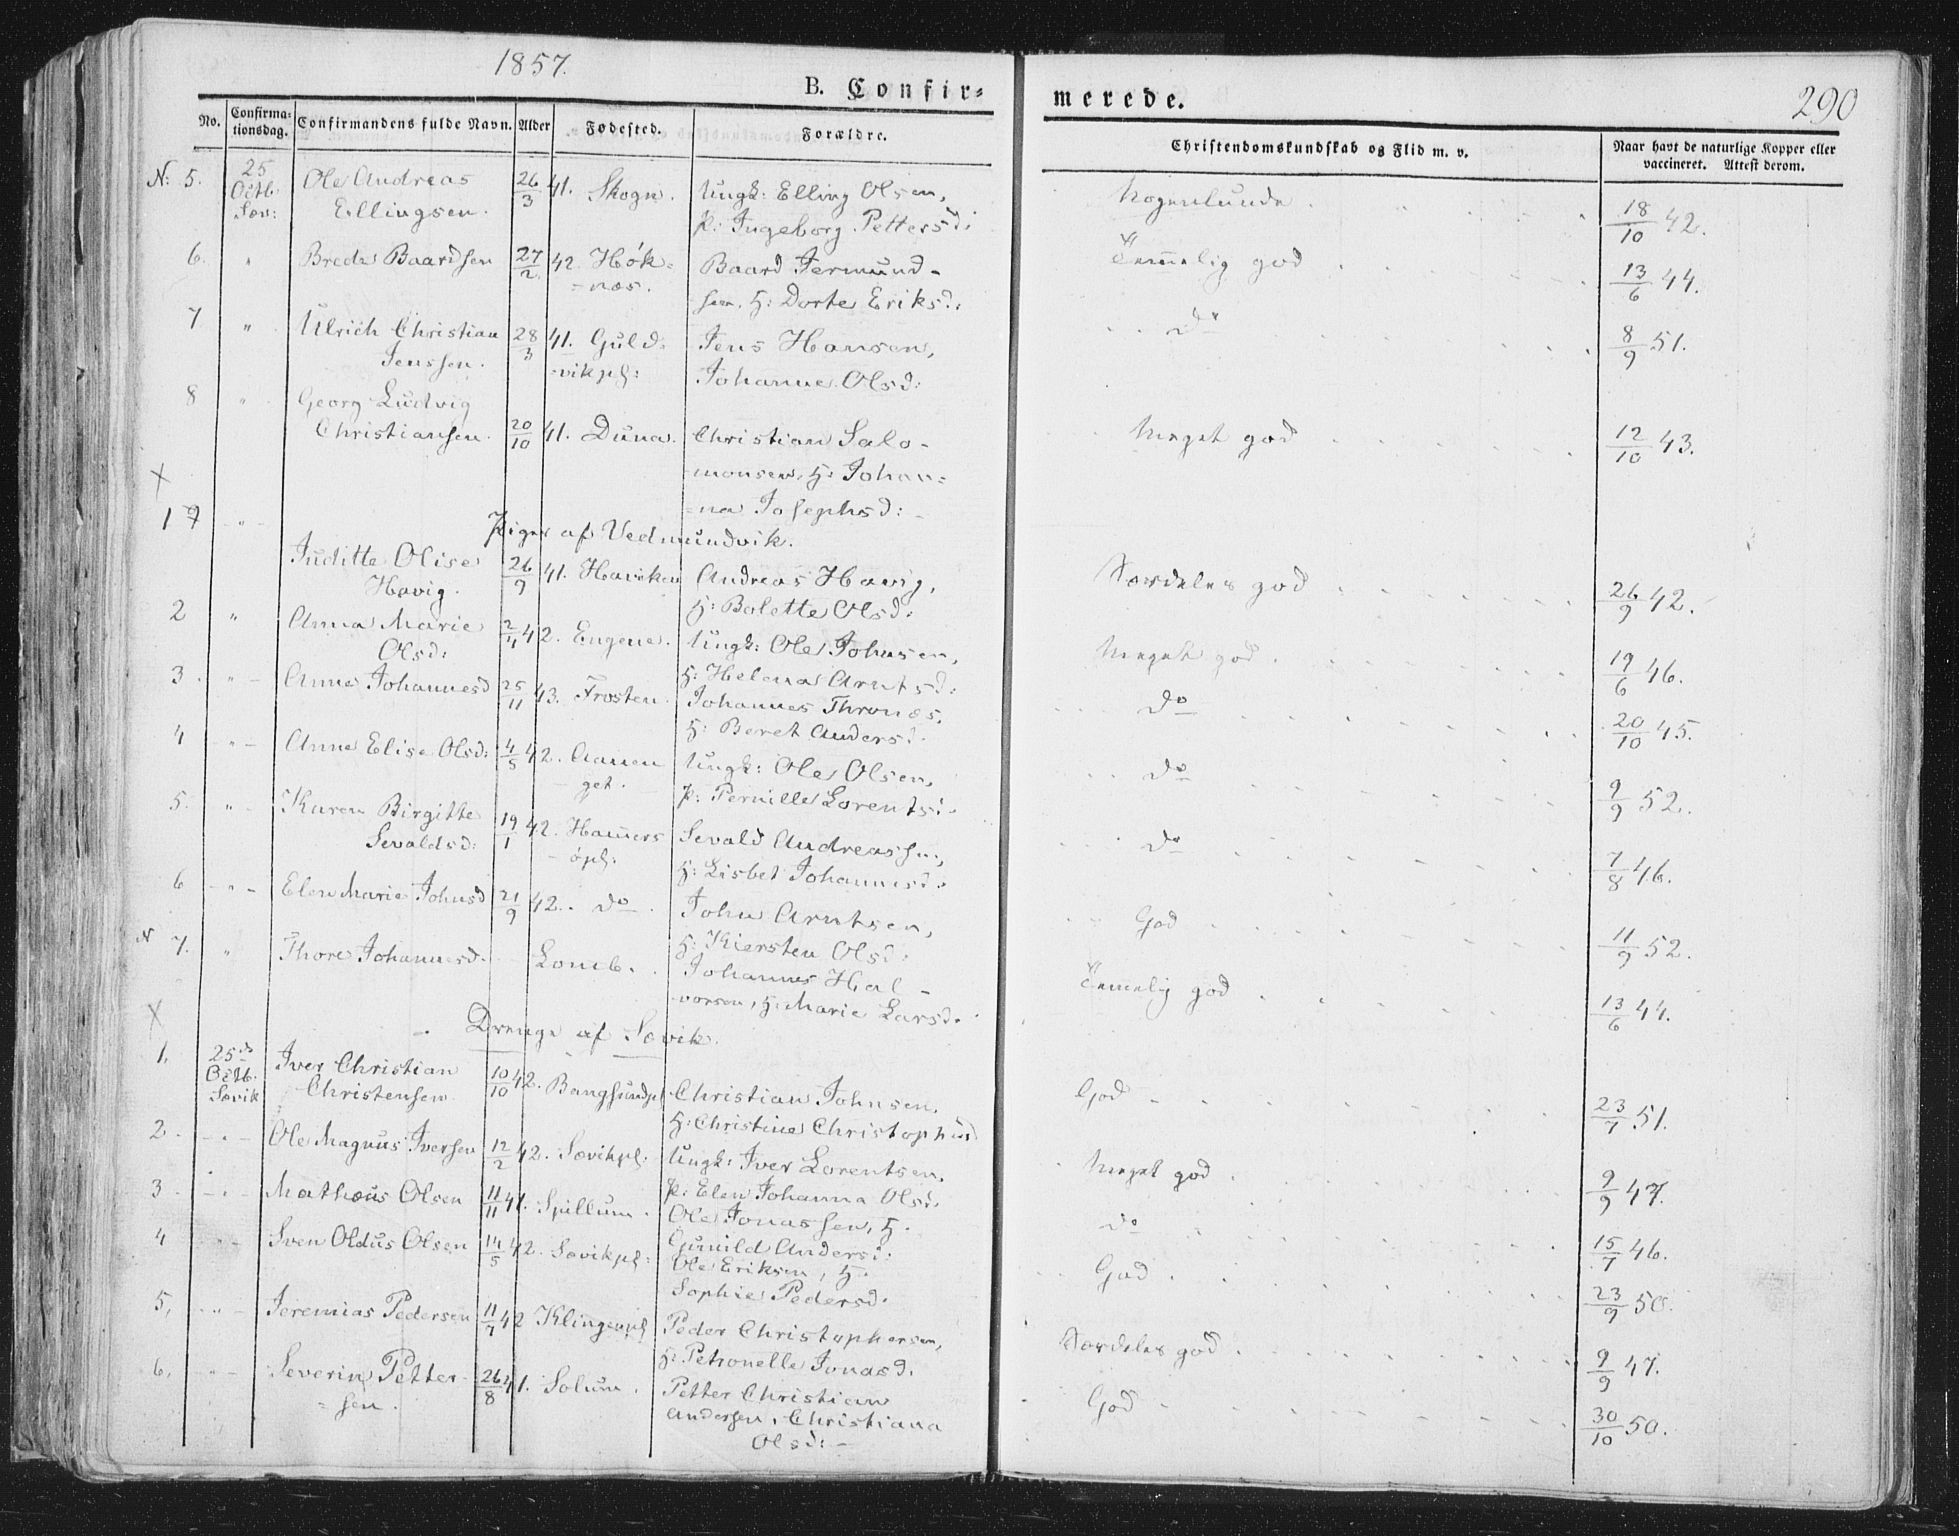 1857.
B. Confir=
merede.
290
No. Confirma-tionsdag. Confirmandens fulde Navn. Alder Fødested. Forældre. Christendomskundskab og Flid m. v. Naar havt de naturlige Kopper eller vaccineret. Attest derom.
N: 5. 25 Octb. Ole Andreas 26/3 41. Skogn. Ungk: Elling Olsen, Nogenlunde 18/10 42.
Sæv: Ellingsen. p: Ingeborg Pettersd:
6. " Brede Baardsen 27/2 42. Høk= Baard Jermund- Temmelig god 13/6 44.
=næs. sen, H: Dorte Eriksd:
7 " Ulrich Christian 28/3 41. Guld= Jens Hansen, do 8/9 51.
Jenssen. -vikpl: Johanne Olsd:
8 " Georg Ludvig
Christiansen. 20/10 41. Duna. Christian Salo- Meget god 12/10 43.
monsen, H: Johan=
=na Josephsd:
X
Piger af Vedmundvik.
1 " Juditte Olise 26/9 41. Haviken Andreas Havig, Særdeles god 26/9 42.
Havig. H: Bolette Olsd:
2 " Anna Marie 2/4 42. Engene. Ungk: Ole Johnsen, Meget god 19/6 46.
Olsd: H: Helena Arntsd:
3. " Anne Johannesd 25/11 43. Frosten. Johannes Thronæs, do 20/10 45.
H: Beret Andersd.
4 " Anne Elise Olsd: 4/5 42. Aanen Ungk: Ole Olsen, do 9/9 52.
get. p: Pernille Lorentsd.
5. " Karen Birgitte 19/1 42. Hamers Sevald Andreassen, do 7/8 46.
Sevaldsd: øpl: H: Lisbet Johannesd.
6 " Elen Marie Johnsd 21/9 42. do John Arntsen, God 11/9 52.
H: Kiersten Olsd:
N 7. " Thore Johannesd. Lomb. Johannes Hal- Temelig god 13/6 44.
vorsen, H: Marie Larsd.
X
Drenge af Sævik.
1. 25de Octb. Sævik Iver Christian 10/10 42. Bangsundpl Christian Johnsen, God 23/7 51.
Christensen H: Christine Christophersd
2. " Ole Magnus Iversen 12/2 42. Sævikpl. Ungk: Iver Lorentsen, Meget god 9/9 47.
p: Elen Johanna Olsd.
3. " Mathæus Olsen 11/11 41. Spillum. Ole Jonassen, H. do 15/7 46.
Gunild Andersd.
4 " Sven Oldus Olsen 14/5 42. Sævikpl: Ole Eriksen, H. God 23/9 50.
Sophie Pedersd.
5, " Jeremias Pedersen 11/7 42 Klingenpl Peder Christophersen, Særdeles god 9/9 47.
H: Petronelle Jonasd.
6, " Severin Petter- 26/8 41. Solum. Petter Christian God 30/10 50.
=sen. Andersen, Christiana
Olsd: